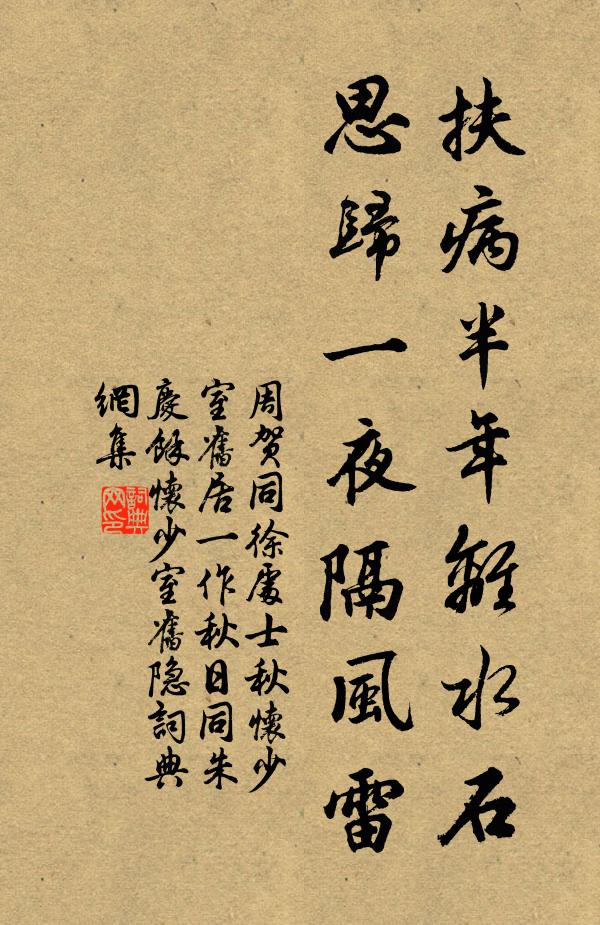 扶病半年離水石
思歸一夜隔風雷
周賀同徐處士秋懷少
室舊居一作秋日同朱
慶餘懷少室舊隐詞典
網集
詞典
网印